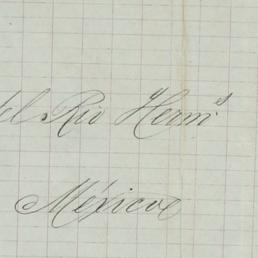 del Rio Herms
México